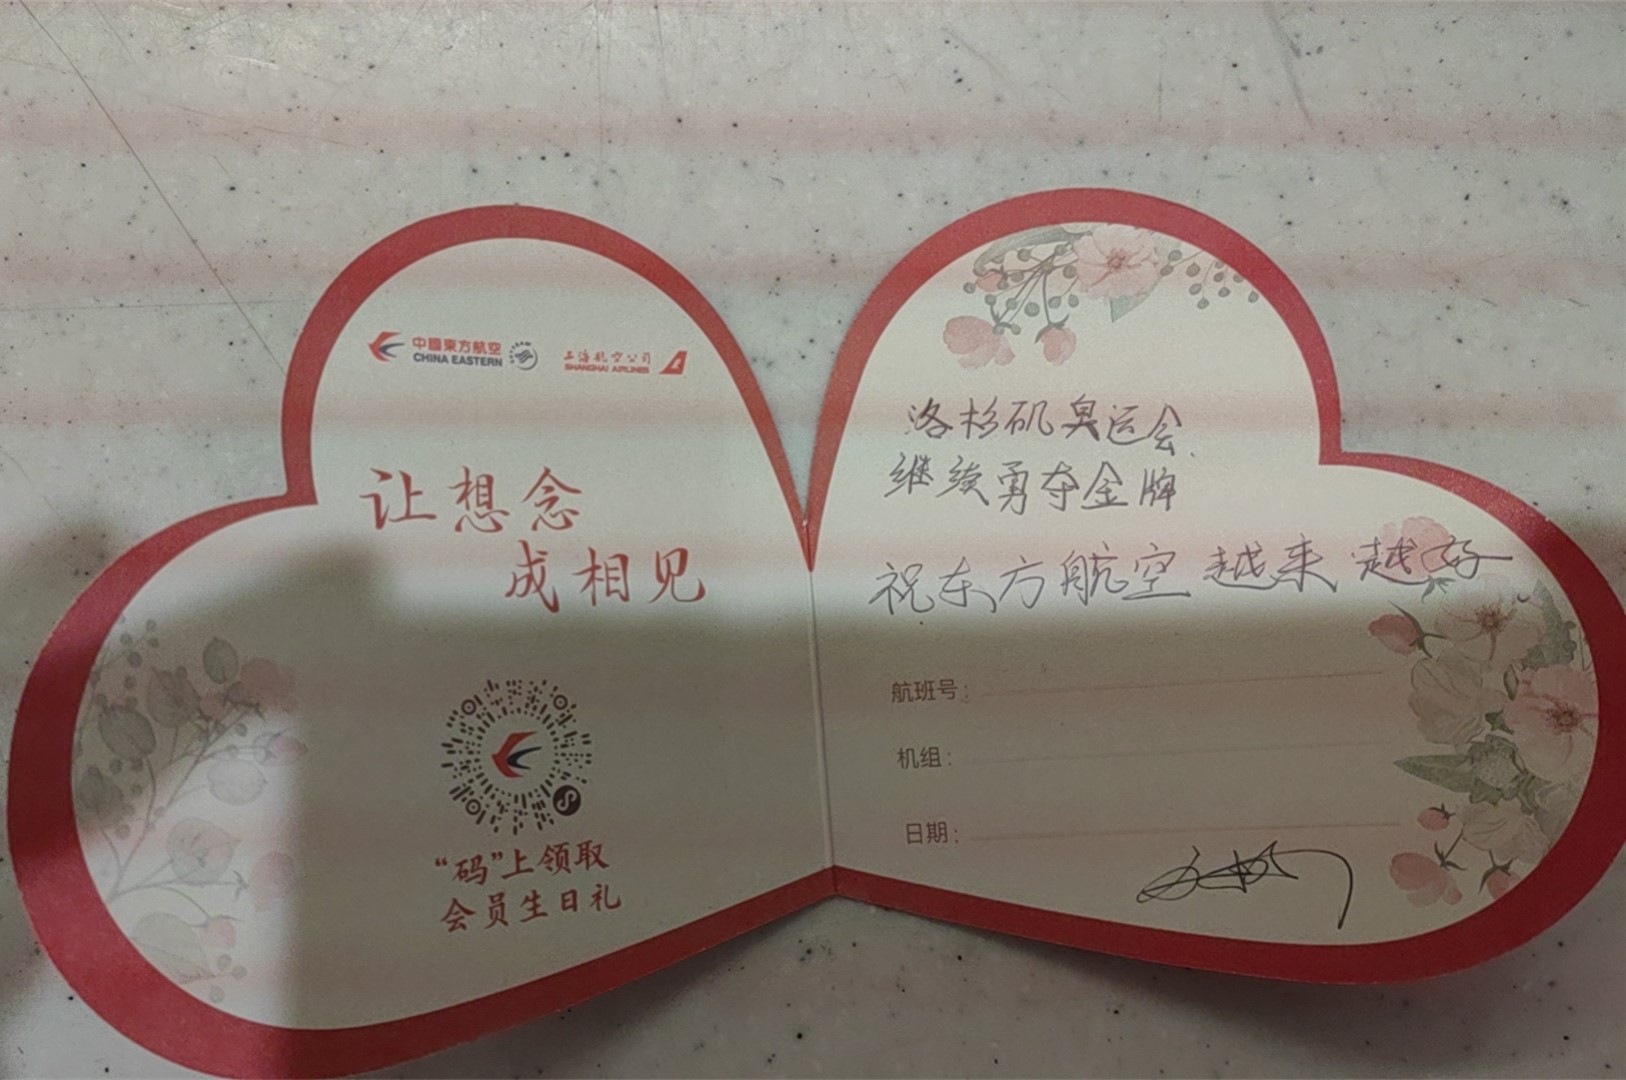 中國東方航空
CHINA EASTERN
上海航空公司
SHANGHAI AIRLINES
让想念
成相见
“码”上领取
会员生日礼
洛杉矶奥运会
继续勇夺金牌
祝东方航空越来越好
航班号：
机组：
日期：